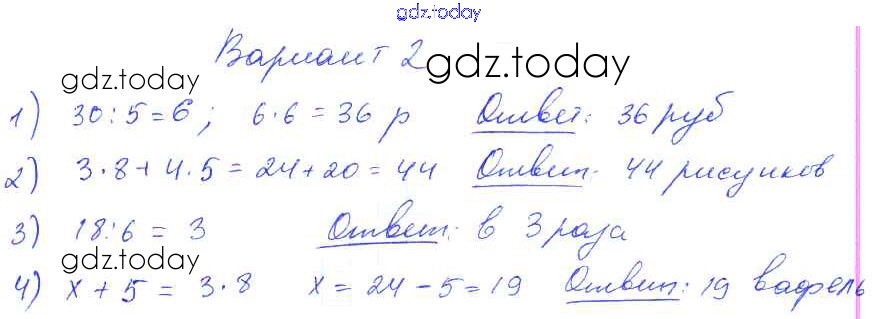 gdz.today
Вариант 2 gdz.today
gdz.today
1) 30:5=6; 6·6=36 р Ответ: 36 руб
2) 3·8+4·5=24+20=44 Ответ: 44 рисунков
3) 18:6=3 Ответ: в 3 раза
gdz.today
4) x+5=3·8 x=24-5=19 Ответ: 19 вафель